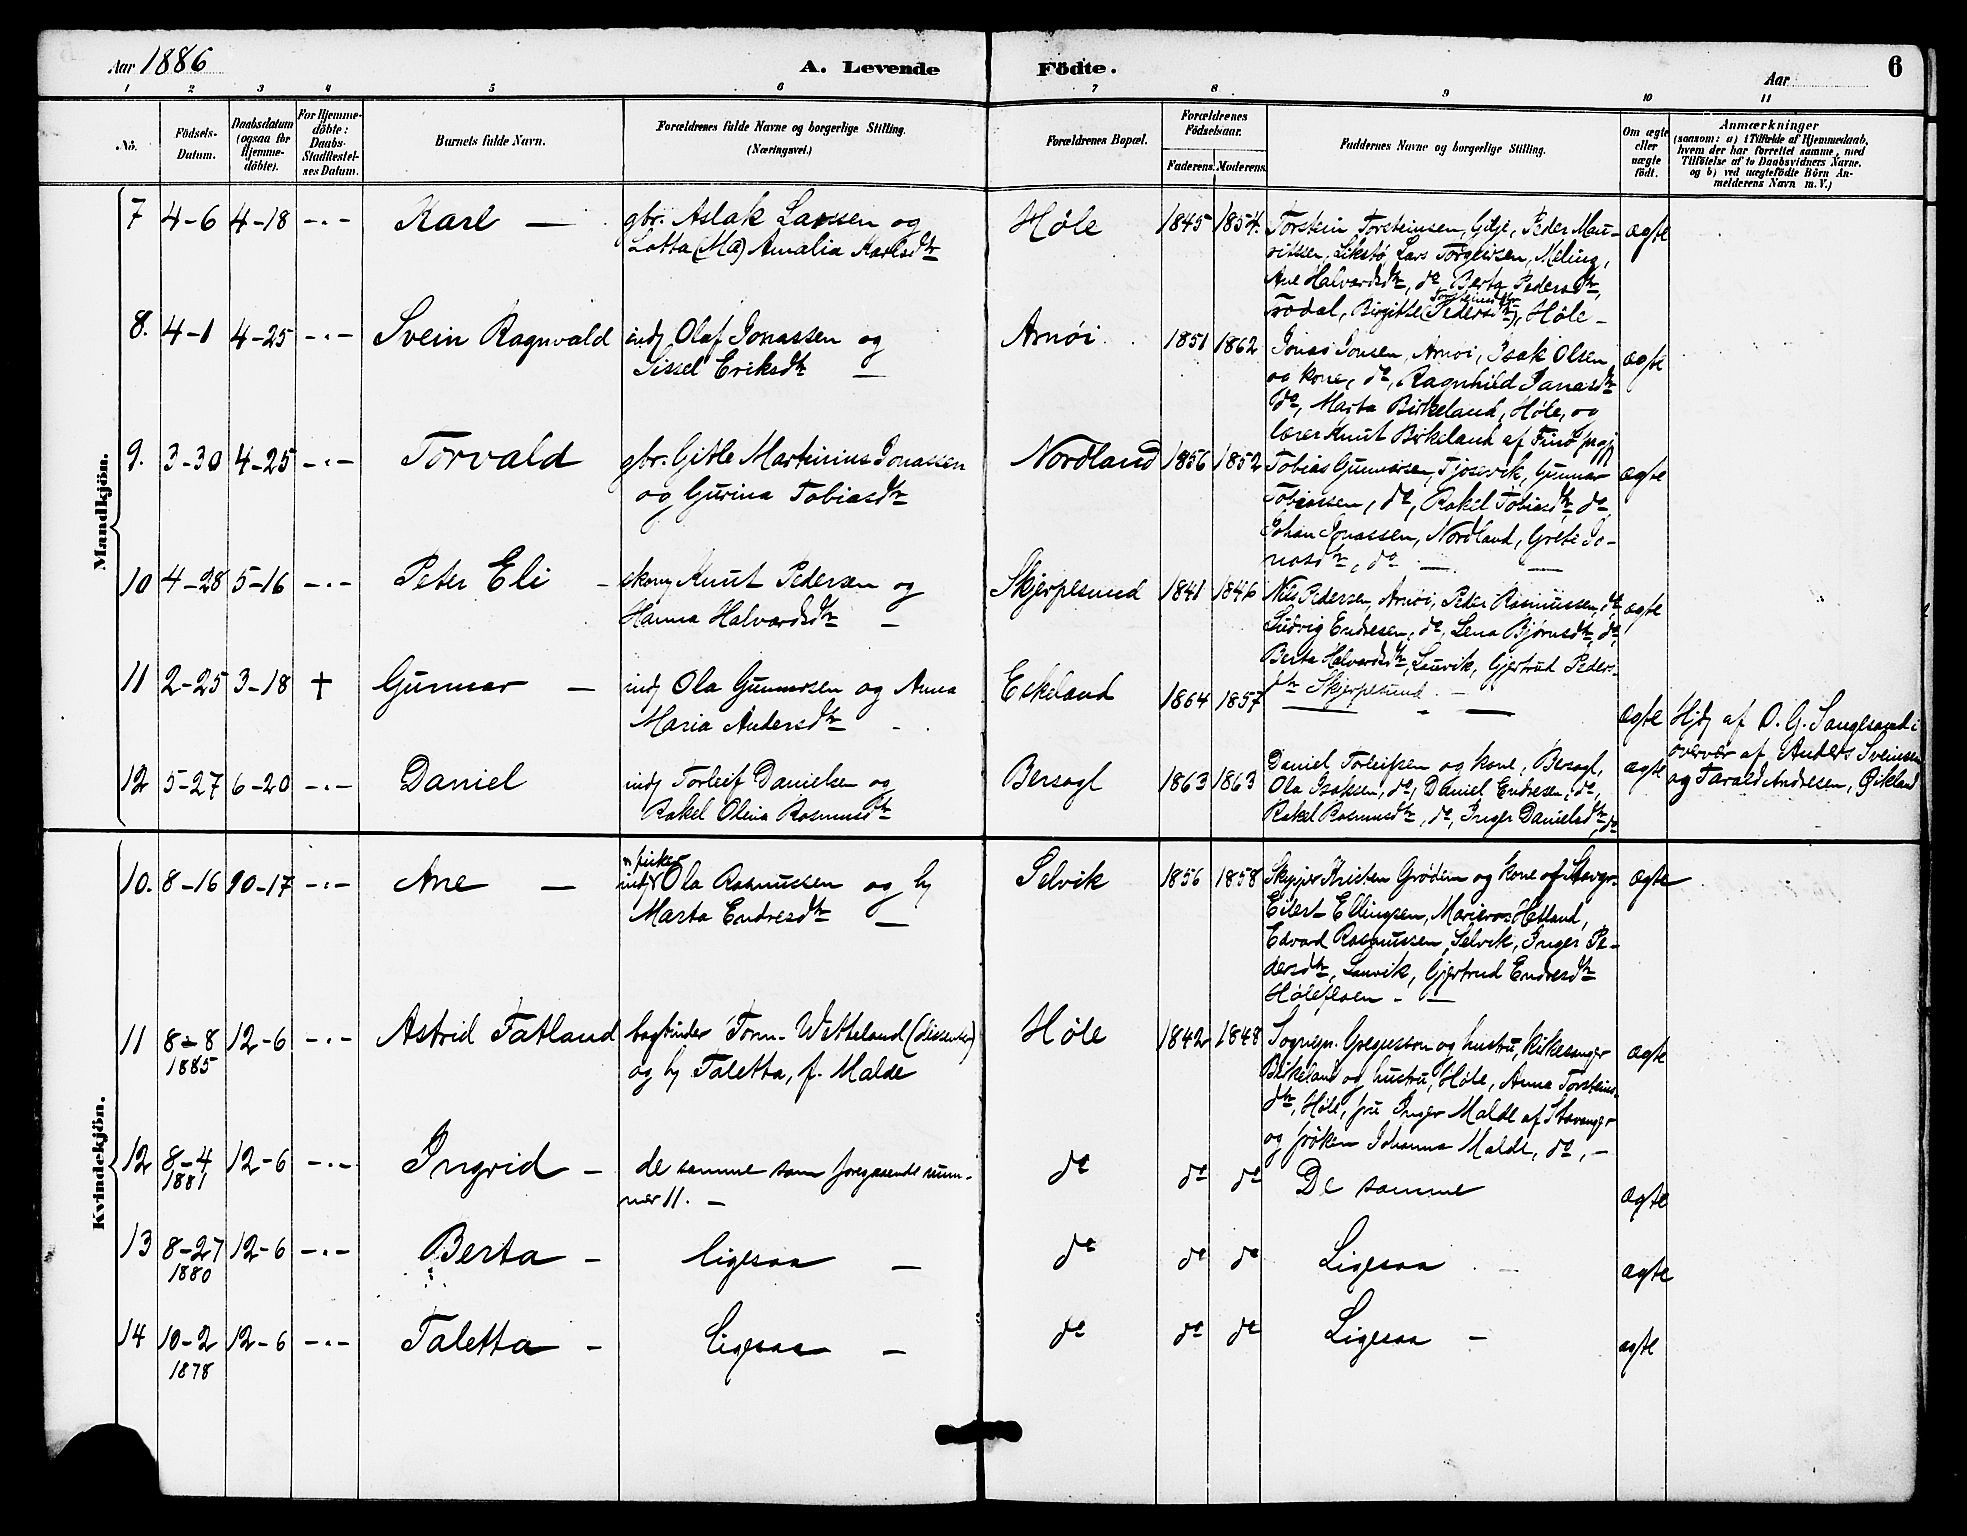 Aar 1886
A. Levende Födte.
Aar
6
1 2 3 4 5 6 7 8 9 10 11
No.
Födsels-
Datum.
Daabsdatum
(ogsaa för
Hjemme-
döbte).
For Hjemme-
döbte:
Daabs-
Stadfæstel-
ses Datum.
Barnets fulde Navn.
Forældrenes fulde Navne og borgerlige Stilling.
(Næringsvei.)
Forældrenes Bopæl.
Forældrenes
Födselsaar.
Faderens. Moderens.
Faddernes Navne og borgerlige Stilling.
Om ægte
eller
uægte
födt.
Anmærkninger
(saasom: a) i Tilfælde af Hjemmedaab,
hvem der har forrettet samme, med
Tilföielse af to Daabsvidners Navne.
og b) ved uægtefödte Börn An-
melderens Navn m. V.)
Mandkjön.
7 4-6 4-18 -"- Karl — gbr. Aslak Larssen og
Lotta (Ma) Amalia Karlsdtr
Høle 1845 1854.
Torstein Torsteinsen, Gilje, Peder Mau-
ritssen, Likstø, Lars Torgeirsen, Meling,
Ane Halvardsdtr, do, Berta Pedersdtr,
Torsteinsdtr
Todal, Birgitte (Pedersdtr), Høle -
ægte
8. 4-1 4-25 -"- Svein Ragnvald indj Olaf Jonassen og
Sissel Eriksdtr —
Arnøi 1851 1862
Jonas Jonsen, Arnøi, Isak Olsen
og kone, do, Ragnhild Jonasdtr
do, Marta Birkeland, Høle, og
lærer Knut Birkeland af Finø prgj
ægte
9. 3-30 4-25 -"- Torvald gbr. Gitle Martinius Jonassen
og Gurina Tobiasdtr
Nordland 1856 1852
Tobias Gunnarsen, Tjosevik, Gunnar
Tobiassen, do, Rakel Tobiasdtr, do,
Johan Jonassen, Nordland, Grete Jo-
nasdtr, do — —
ægte
10 4-28 5-16 -"- Peter Eli - skom Knut Pedersen og
Hanna Halvardsdtr —
Skjerpesund 1841 1846
Nils Pedersen, Arnøi, Peder Rasmussen, do,
Ludvig Endresen, do, Lena Bjørnsdtr, do,
Berta Halvardsdtr, Lauvik, Gjertrud Peders-
dtr Skjerpesund. —
ægte
11 2-25 3-18 † Gunnar — indj Ola Gunnarsen og Anna
Maria Andersdtr -
Eskeland 1864 1857
— " —
ægte
Hjdj af O. G. Sauglsand i
overvær af Anders Sveinsen
og Tarald Andresen, Øikland
12 5-27 6-20 -"- Daniel indj Torleif Danielsen og
Rakel Olina Rasmusdtr
Bersagl 1863 1863
Daniel Torleifsen og kone, Bersagl,
Ola Isaksen, do, Daniel Endresen, do,
Rakel Rasmusdtr, do, Inger Danielsdtr, do
ægte
Kvindekjön.
10. 8-16 10-17 -"- Ane — fisker
indj Ola Rasmussen og hj
Marta Endresdtr —
Selvik 1856 1858
Skipper Kristen Grødem og kone af Stavgr.
Eilert Ellingsen, Marieros Hetland,
Edvard Rasmussen, Selvik, Inger Pe-
dersdtr, Lauvik, Gjertrud Endresdtr
Høleflaen - —
ægte
11 8-8
1885
12-6 -"- Astrid Tatland bogbinder Torm. Wetteland (dissenter)
og hj Taletta, f. Malde
Høle 1842 1848
Sognepr. Gregusson og hustru, kirkesanger
Birkeland og hustru, Høle, Anna Torsteins-
dtr, Høle, fru Inger Malde af Stavanger
og frøken Johanna Malde, do, -
ægte
12 8-4
1881
12-6 -"- Ingrid - de samme som foregaaende num-
mer 11. —
do do do De samme ægte
13 8-27
1880
12-6 -"- Berta - ligesaa —
do do do Ligesaa - ægte
14 10-2
1878
12-6 -"- Taletta - ligesaa —
do do do Ligesaa - ægte